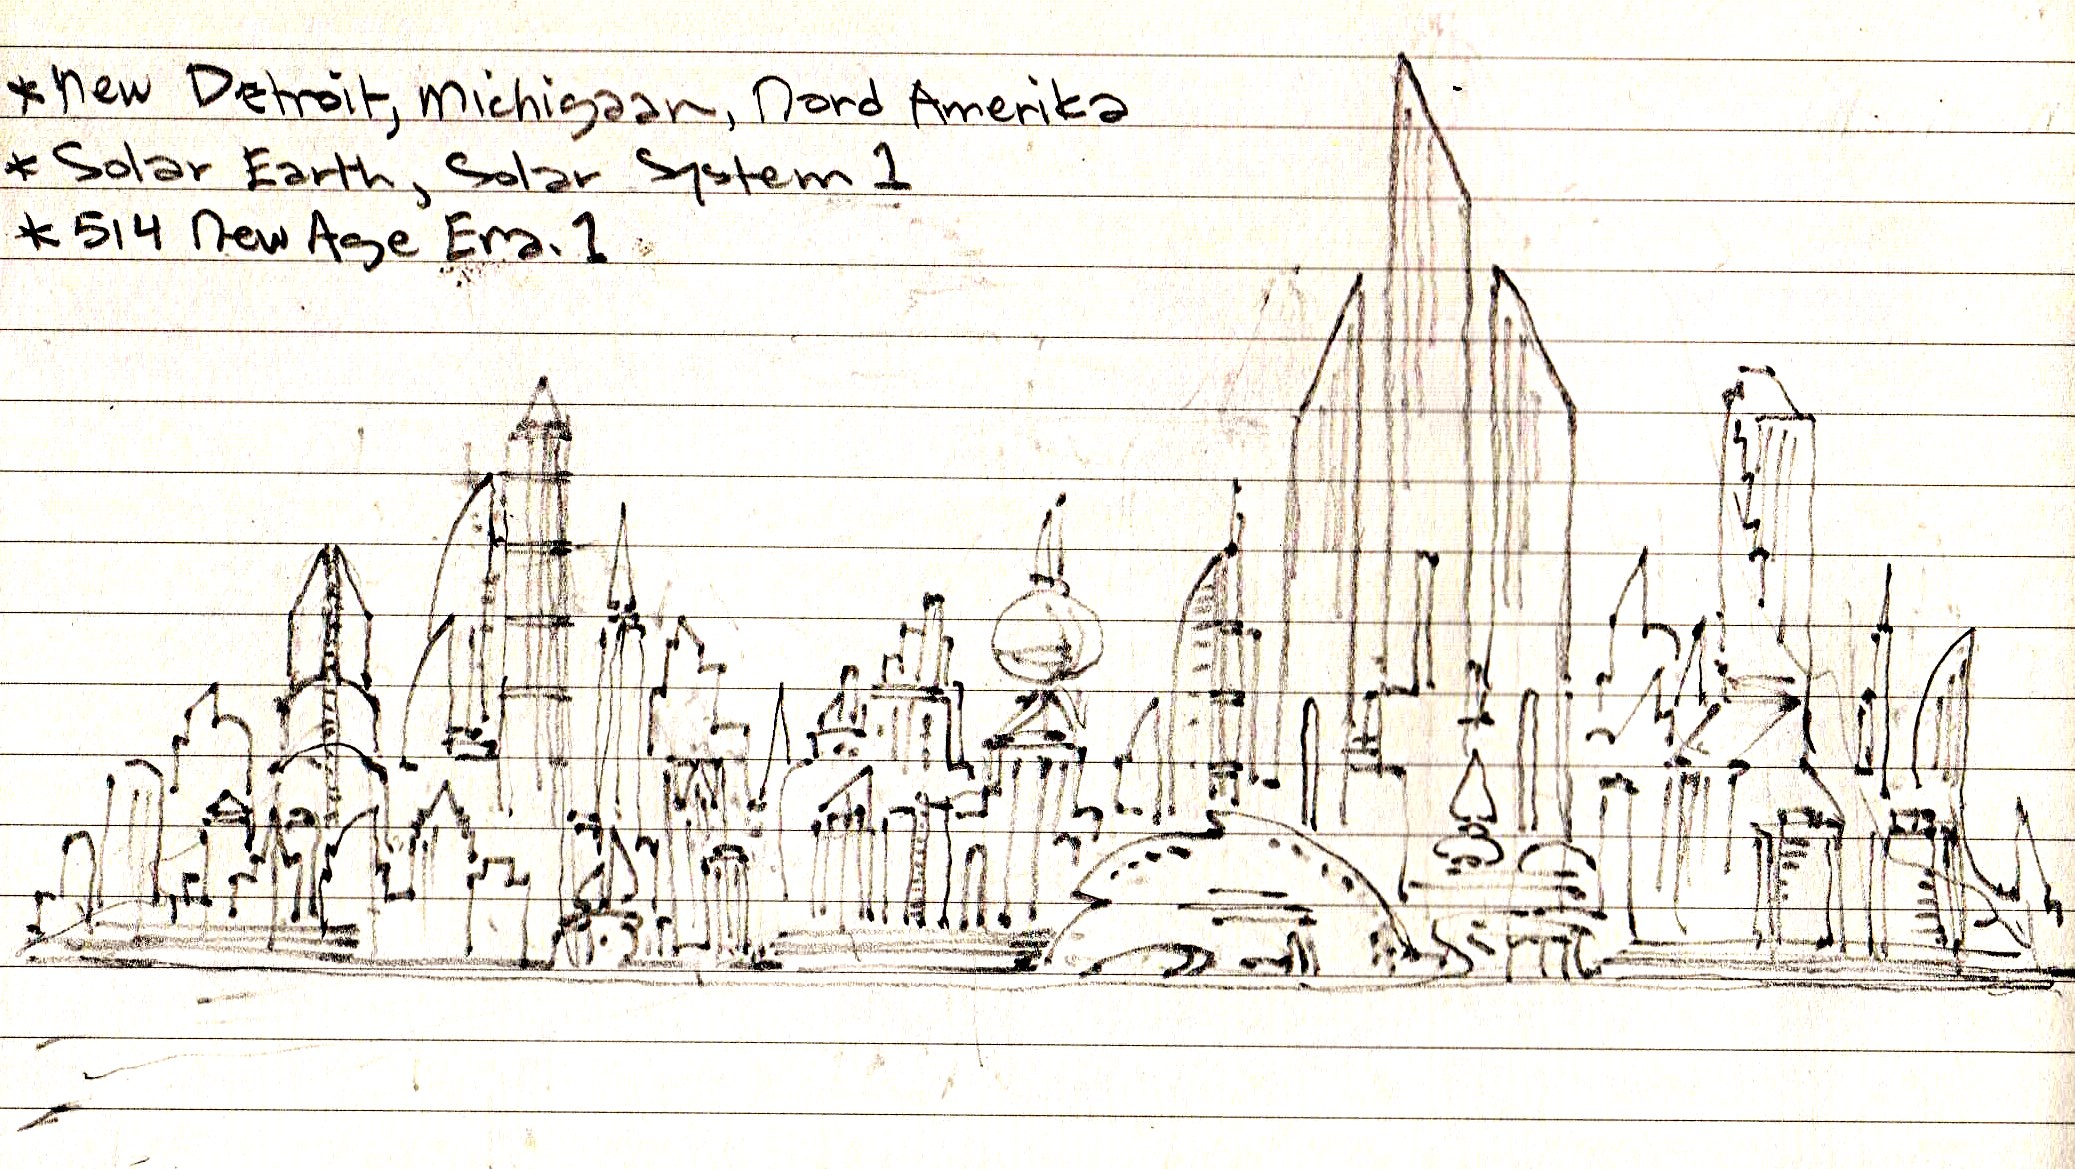 *New Detroit, Michigaan, Nord Amerika
* Solar Earth, Solar System 1
* 514 New Age Era. 1